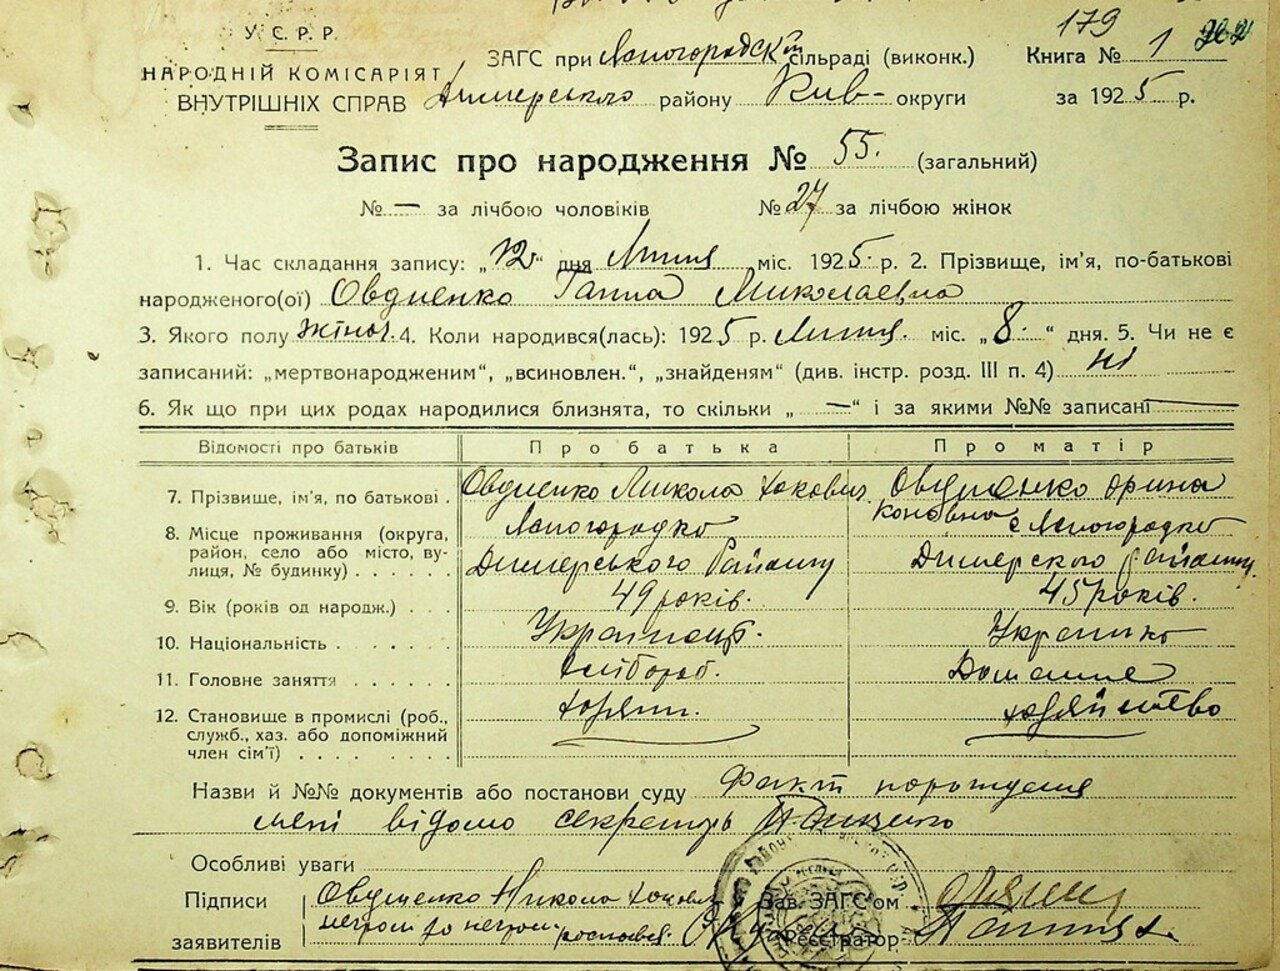 179
У.С.Р.Р.
НАРОДНІЙ КОМІСАРІЯТ
ВНУТРІШНІХ СПРАВ
ЗАГС при сільраді (виконк.) Книга № 1
Димерського району Київ- округи за 1925 р.
Запис про народження № 55. (загальний)
№ — за лічбою чоловіків № 27 за лічбою жінок
1. Час складання запису: „12“ дня Липня міс. 1925 р. 2. Прізвище, ім'я, по-батькові
народженого(ої) Овдиенко Ганна Миколаевна
3. Якого полу жіноч. 4. Коли народився(лась): 1925 р. Липня. міс. „8.“ дня. 5. Чи не є
записаний: „мертвонародженим“, „всиновлен.“, „знайденям“ (див. інстр. розд. III п. 4) ні
6. Як що при цих родах народилися близнята, то скільки „—“ і за якими №№ записані —
Відомості про батьків Про батька Про матір
7. Прізвище, ім'я, по батькові . Овдиенко Микола Овдиенко Орина
8. Місце проживання (округа, район, село або місто, вулиця, № будинку) . . . . . . Димерського Району с Димерского района
9. Вік (років од народж.) . . . 49 років. 45 років.
10. Національність . . . . . . Українець. Українка
11. Головне заняття . . . . . . хлібороб. Домашне
12. Становище в промислі (роб., служб., хаз. або допоміжний член сім'ї) . . . . . . хозяйство
Назви й №№ документів або постанови суду Факт порождения
мені відомо секретарь
Особливі уваги
Підписи Овдиенко Никола Зав. ЗАГС'ом
заявителів неграм. Реєстратор